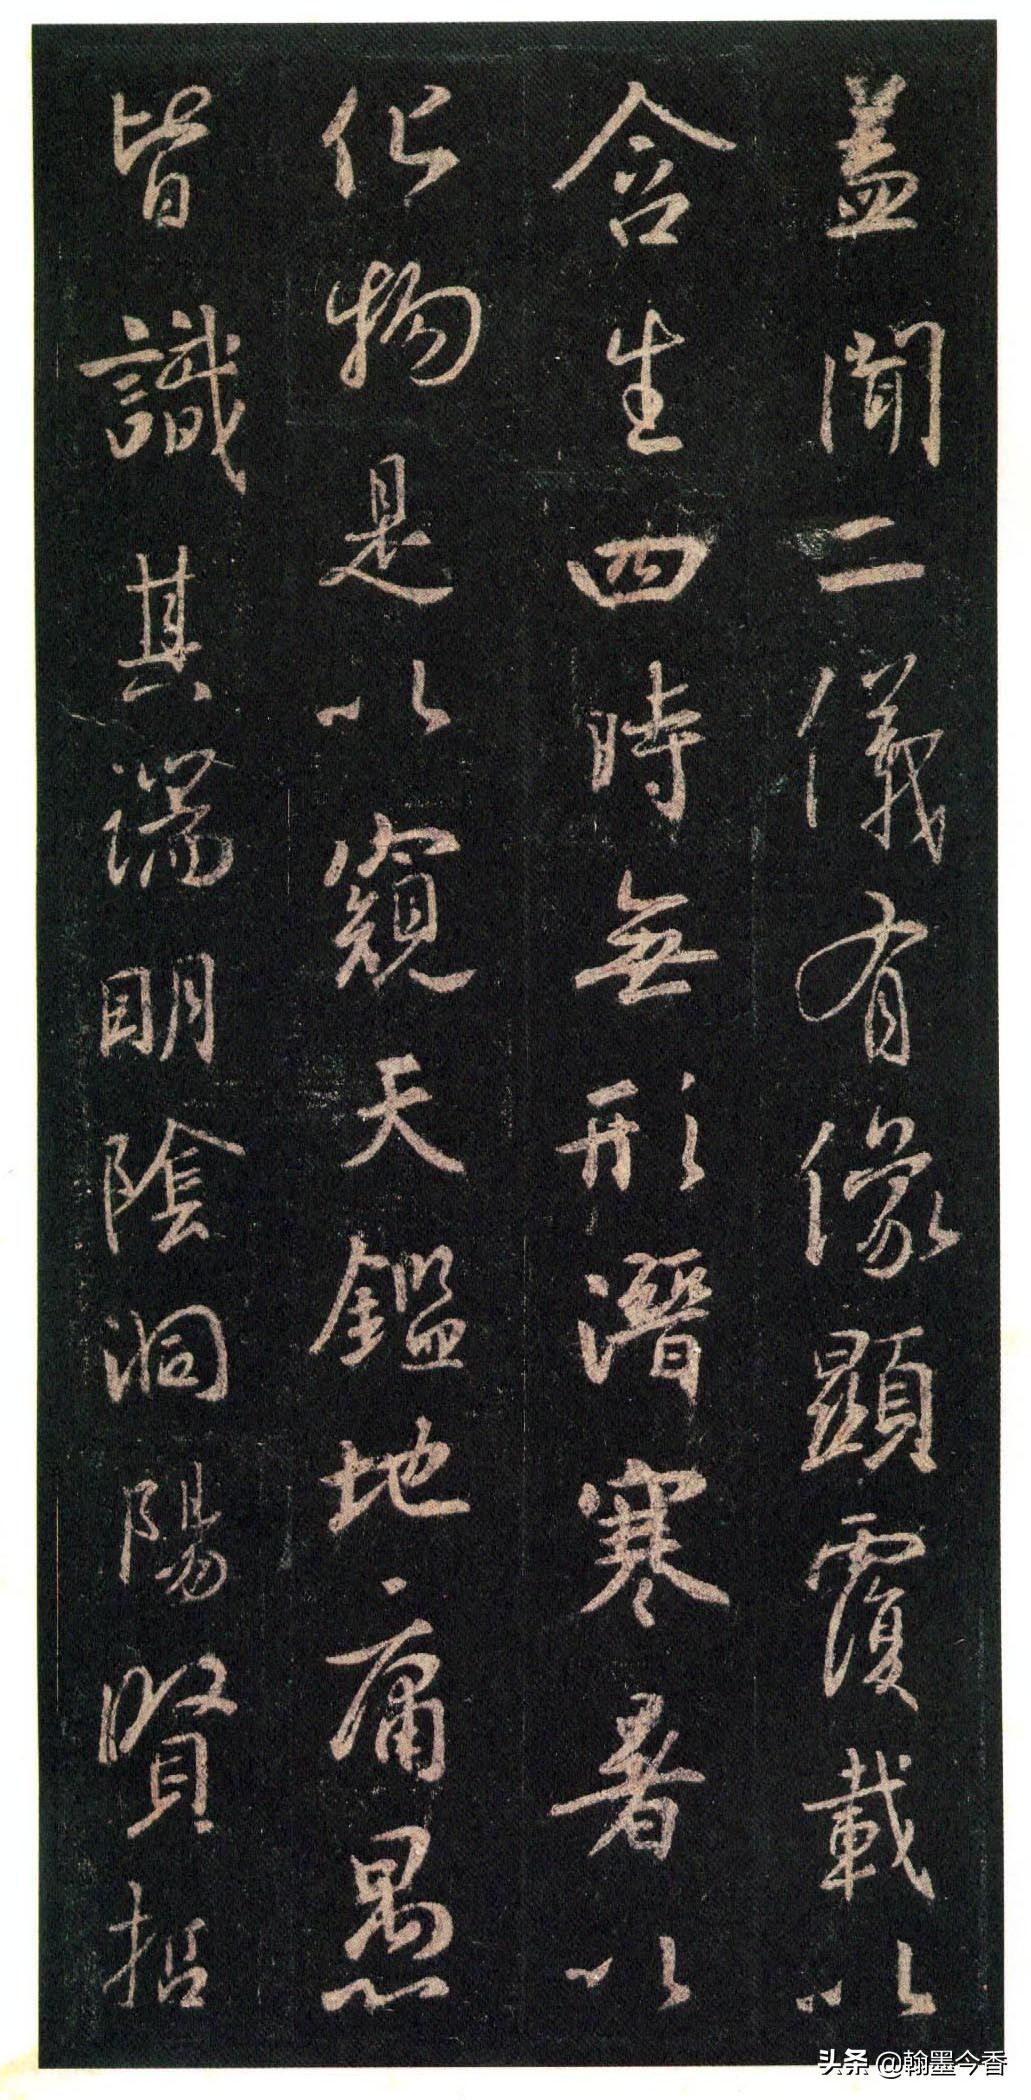 蓋聞二儀有像顯覆載以
含生四時無形潛寒暑以
化物是以窺天鑑地庸愚
皆識其端明陰洞陽賢哲
头条 @翰墨今香